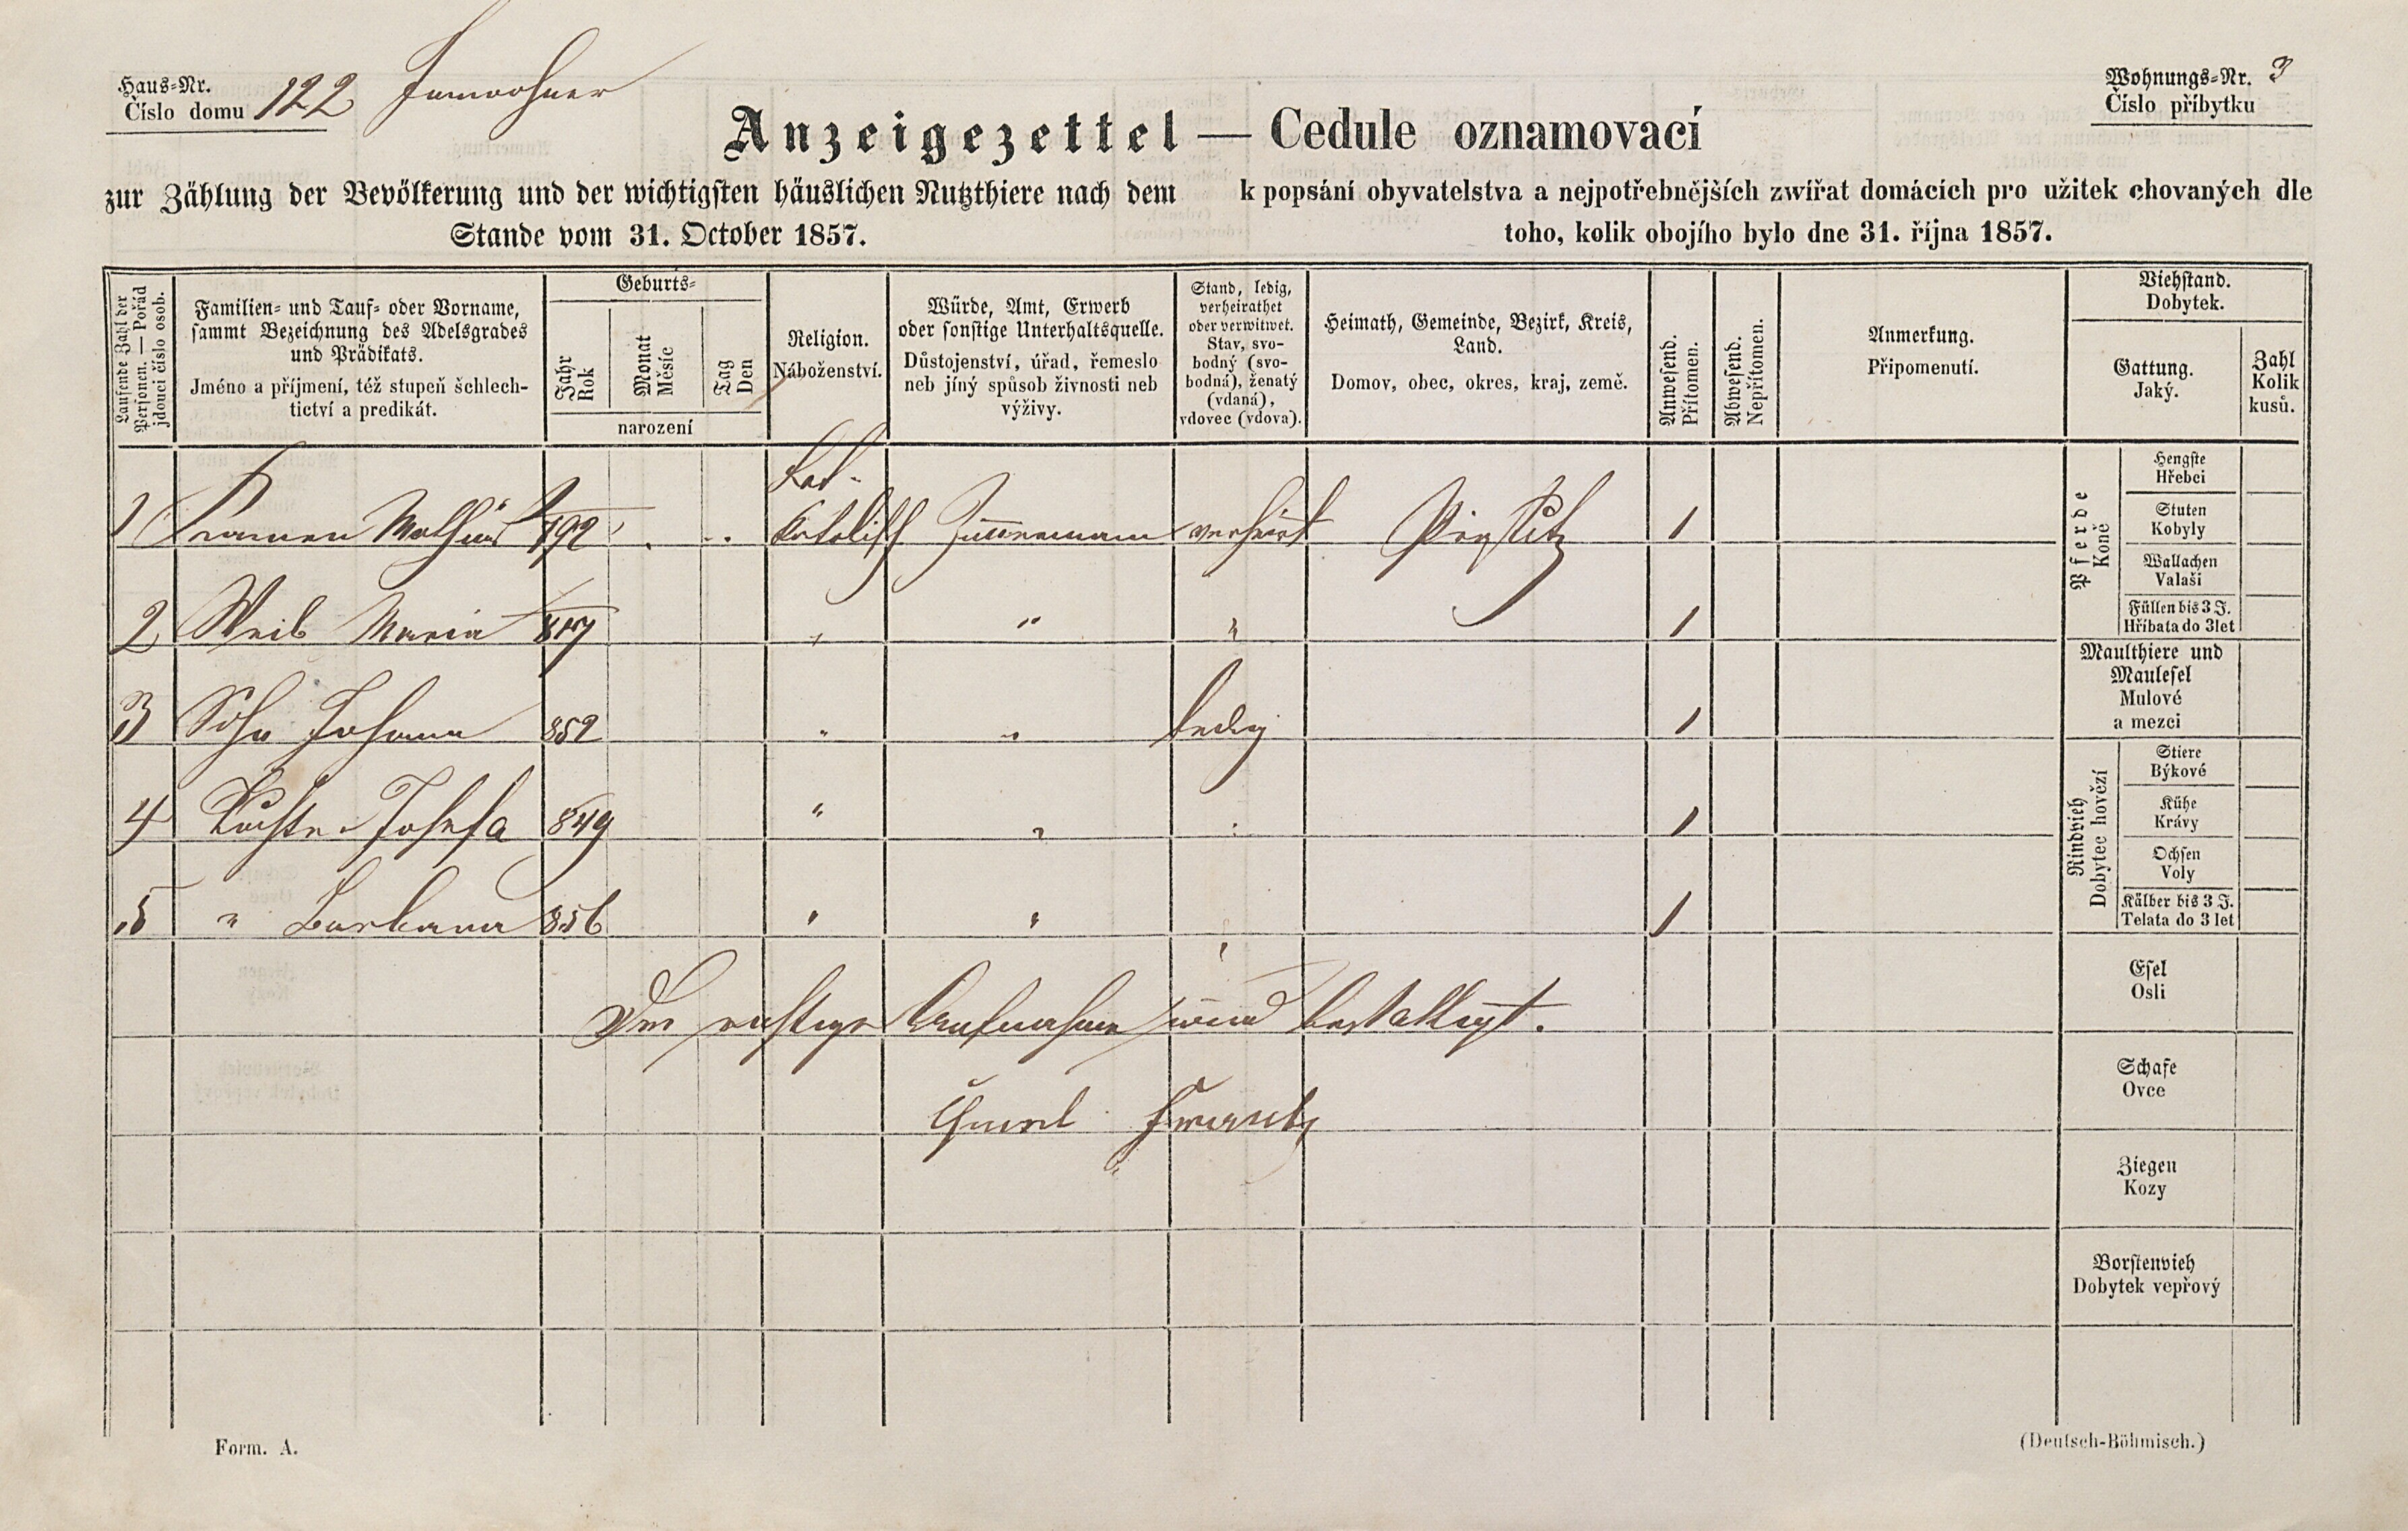 Haus-Nr.
Číslo domu 122 Inwohner
Wohnungs-Nr. 3
Číslo příbytku
Anzeigezettel — Cedule oznamovací
zur Zählung der Bevölkerung und der wichtigsten häuslichen Nutzthiere nach dem
Stande vom 31. October 1857.
k popsání obyvatelstva a nejpotřebnějších zwířat domácích pro užitek chovaných dle
toho, kolik obojího bylo dne 31. října 1857.
Laufende Zahl der
Personen. — Pořád
jdoucí číslo osob.
Familien- und Tauf- oder Vorname,
sammt Bezeichnung des Adelsgrades
und Prädikats.
Jméno a příjmení, též stupeň šchlech-
tictví a predikát.
Geburts-
Jahr
Rok
Monat
Měsíc
Tag
Den
narození
Religion.
Náboženství.
Würde, Amt, Erwerb
oder sonstige Unterhaltsquelle.
Důstojenství, úřad, řemeslo
neb jíný spůsob živnosti neb
výživy.
Stand, ledig,
verheirathet
oder verwitwet.
Stav, svo-
bodný (svo-
bodná), ženatý
(vdaná),
vdovec (vdova).
Heimath, Gemeinde, Bezirk, Kreis,
Land.
Domov, obec, okres, kraj, země.
Anwesend.
Přítomen.
Abwesend.
Nepřítomen.
Anmerkung.
Připomenutí.
Viehstand.
Dobytek.
Gattung.
Jaký.
Zahl
Kolik
kusů.
1 Mathias 792 Kat. Katolisch Zimmermann verheirt 1
2 Weib Maria 817 " " " 1
3 Sohn Johann 852 " " ledig 1
4 Tochter Josefa 849 " " " 1
5 " Barbara 856 " " " 1
Die richtige Aufnahme wird bestättigt.
Pferde
Koně
Hengste
Hřebci
Stuten
Kobyly
Wallachen
Valaši
Füllen bis 3 J.
Hříbata do 3 let
Maulthiere und
Maulesel
Mulové
a mezci
Rindvieh
Dobytec hovězí
Stiere
Býkové
Kühe
Krávy
Ochsen
Voly
Kälber bis 3 J.
Telata do 3 let
Esel
Osli
Schafe
Ovce
Ziegen
Kozy
Borstenvieh
Dobytek vepřový
Form. A.
(Deutsch-Böhmisch.)